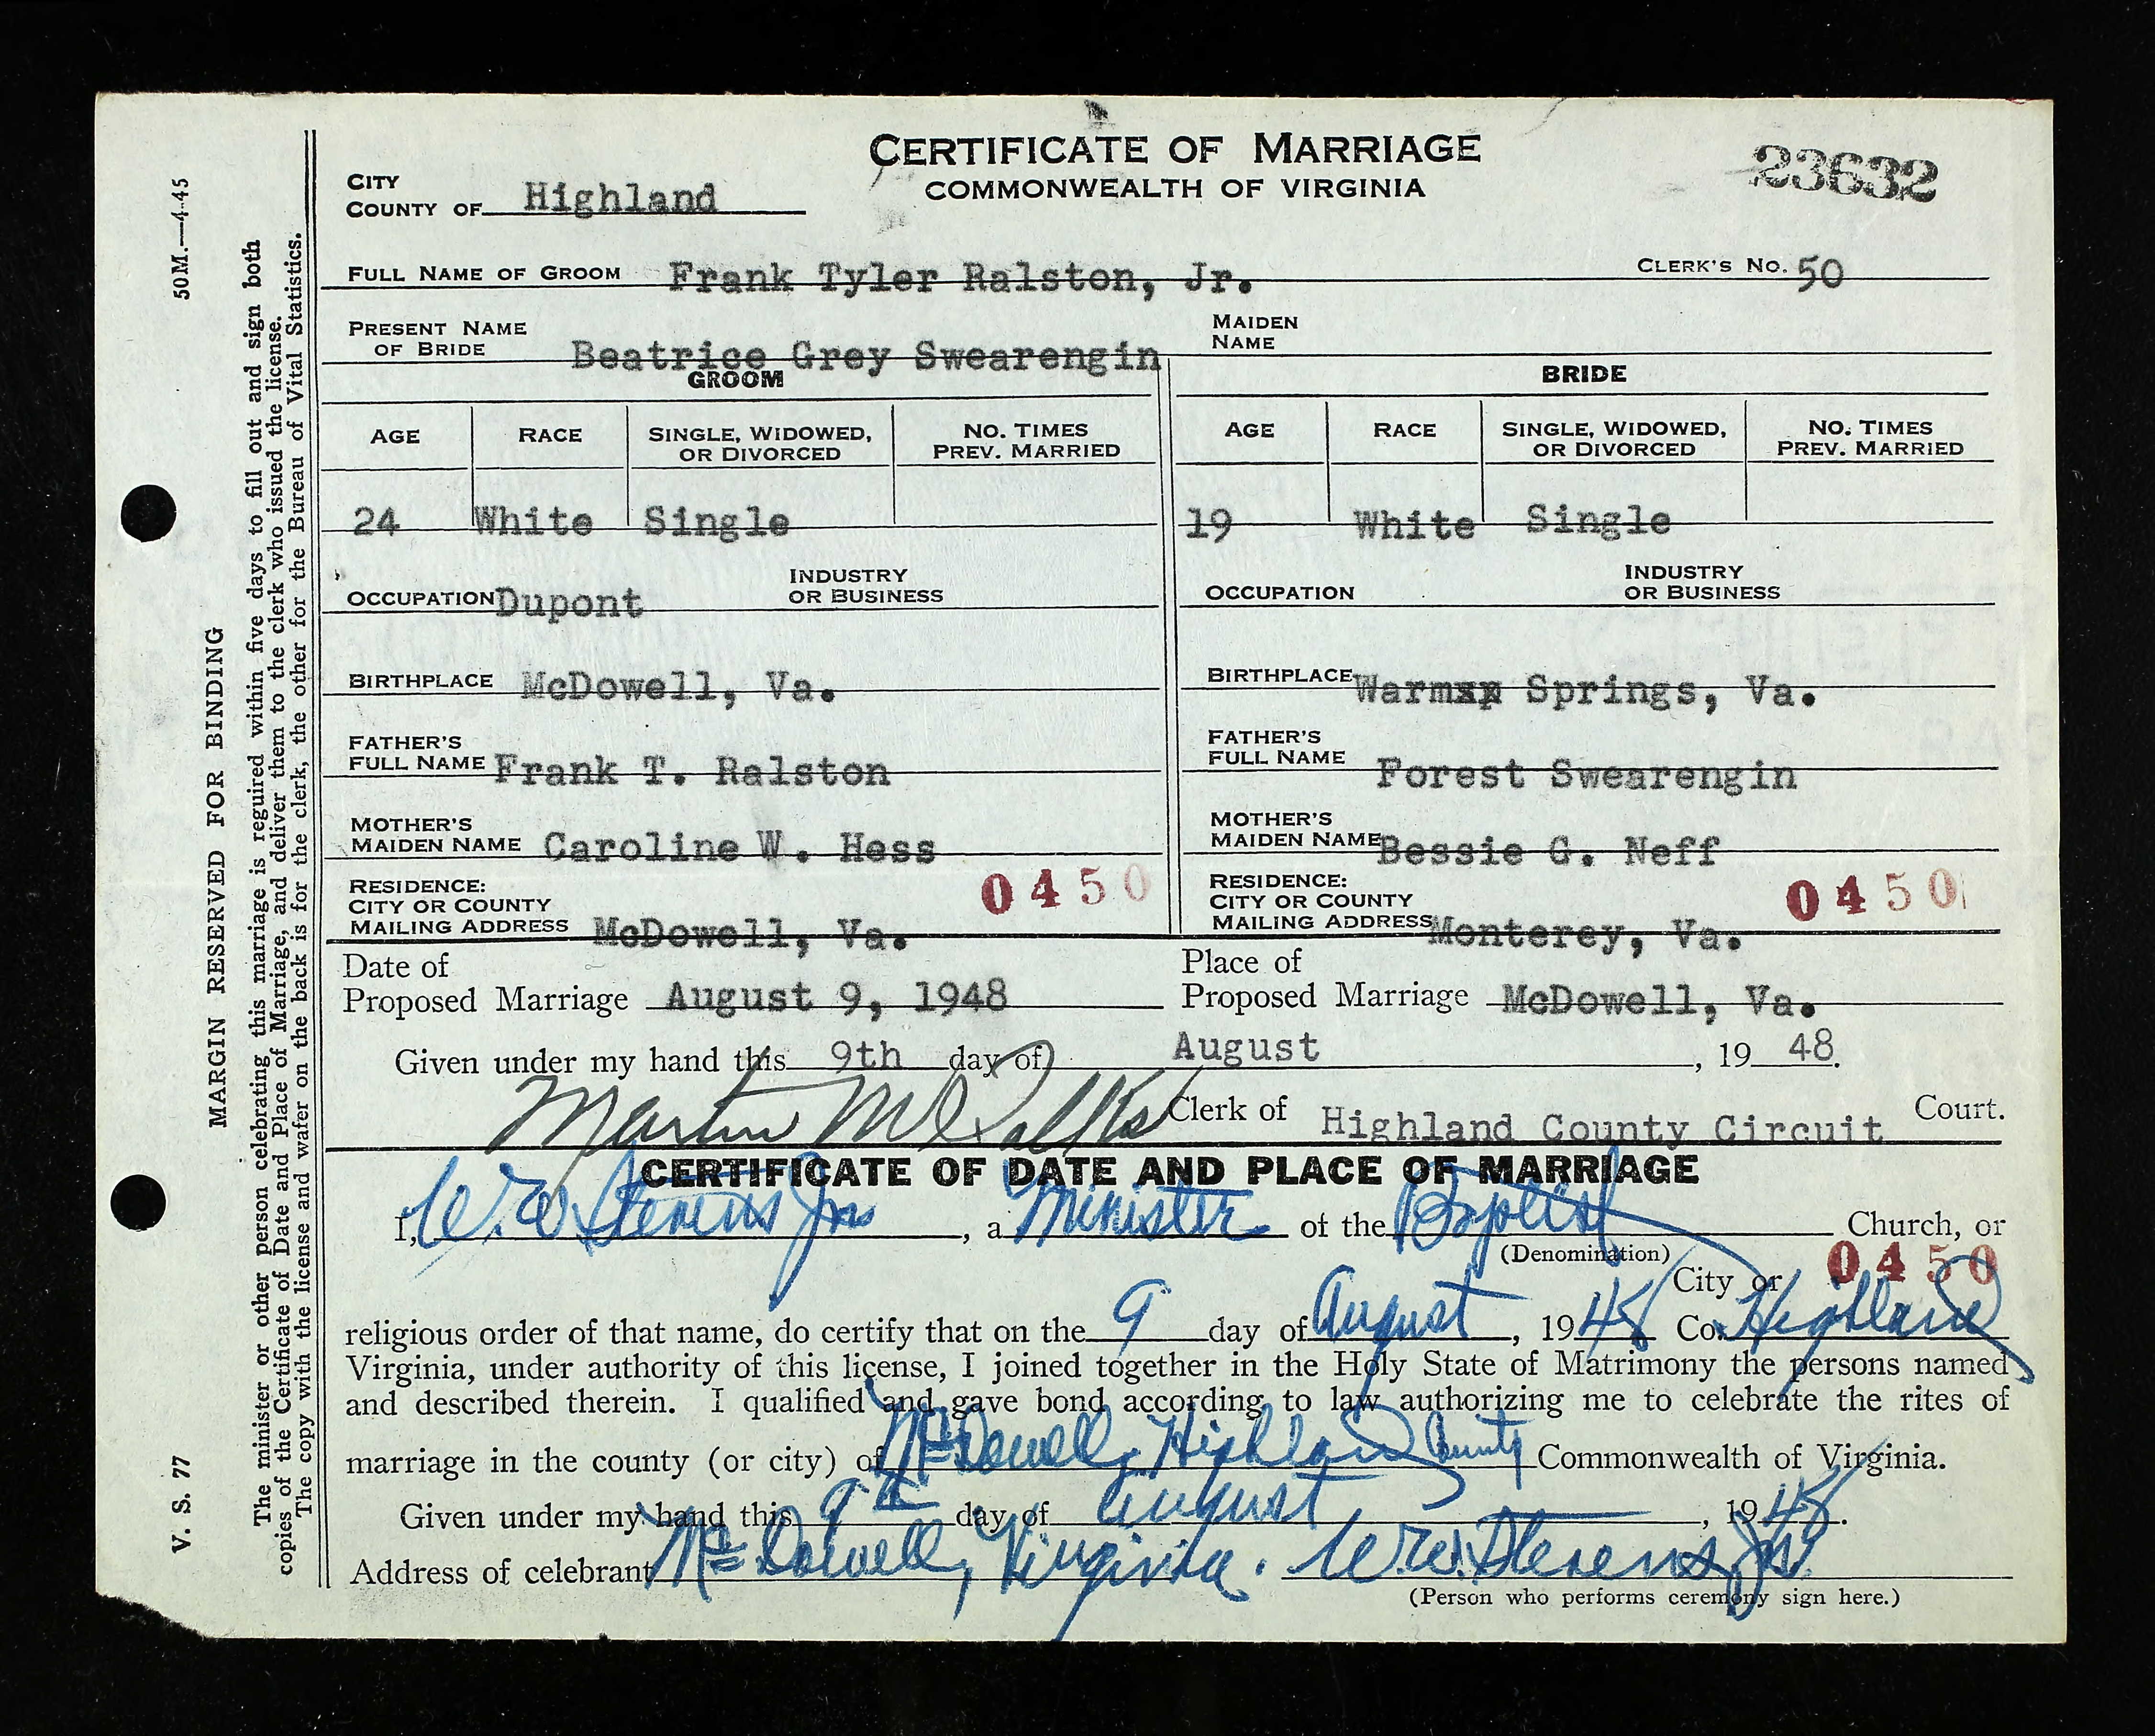 CERTIFICATE OF MARRIAGE
COMMONWEALTH OF VIRGINIA
23632
CITY
COUNTY OF Highland
FULL NAME OF GROOM Frank Tyler Ralston, Jr. CLERK'S No. 50
PRESENT NAME OF BRIDE Beatrice Grey Swearengin MAIDEN NAME
GROOM BRIDE
AGE RACE SINGLE, WIDOWED, OR DIVORCED NO. TIMES PREV. MARRIED AGE RACE SINGLE, WIDOWED, OR DIVORCED NO. TIMES PREV. MARRIED
24 White Single 19 White Single
OCCUPATION Dupont INDUSTRY OR BUSINESS OCCUPATION INDUSTRY OR BUSINESS
BIRTHPLACE McDowell, Va. BIRTHPLACE Warmxx Springs, Va.
FATHER'S FULL NAME Frank T. Ralston FATHER'S FULL NAME Forest Swearengin
MOTHER'S MAIDEN NAME Caroline W. Hess MOTHER'S MAIDEN NAME Bessie G. Neff
RESIDENCE: CITY OR COUNTY 0450 RESIDENCE: CITY OR COUNTY 0450
MAILING ADDRESS McDowell, Va. MAILING ADDRESS Monterey, Va.
Date of Proposed Marriage August 9, 1948 Place of Proposed Marriage McDowell, Va.
Given under my hand this 9th day of August, 19 48.
Martin Clerk of Highland County Circuit Court.
CERTIFICATE OF DATE AND PLACE OF MARRIAGE
I, W. W. Stevens Jr, a Minister of the Baptist Church, or
(Denomination)
City or 0450
religious order of that name, do certify that on the 9 day of August, 1948 Co. Highland
Virginia, under authority of this license, I joined together in the Holy State of Matrimony the persons named
and described therein. I qualified and gave bond according to law authorizing me to celebrate the rites of
marriage in the county (or city) of McDowell, Highland County Commonwealth of Virginia.
Given under my hand this 9th day of August, 1948.
Address of celebrant McDowell, Virginia. W. W. Stevens Jr.
(Person who performs ceremony sign here.)
50M.—4-45
MARGIN RESERVED FOR BINDING
V. S. 77
The minister or other person celebrating this marriage is reguired within five days to fill out and sign both
copies of the Certificate of Date and Place of Marriage, and deliver them to the clerk who issued the license.
The copy with the license and wafer on the back is for the clerk, the other for the Bureau of Vital Statistics.